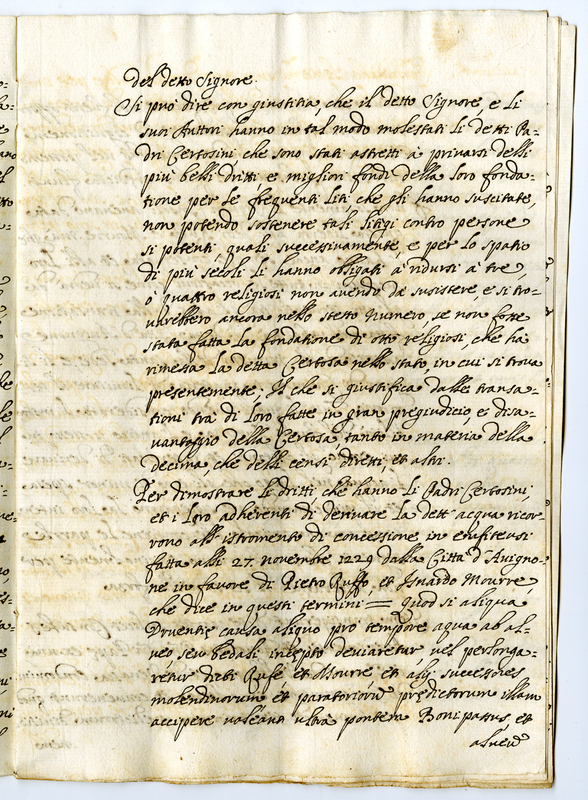 del detto Signore.
Si può dire con giustitia, che il detto Signore, e li
suoi Auttori hanno in tal modo molestati li detti Pa-
dri Certosini che sono stati astretti à privarsi delli
più belli dritti, e migliori fondi della loro fonda-
tione per le frequenti liti, che gli hanno suscitate,
non potendo sostenere tali litigi contro persone
si potenti, quali successivamente, e per lo spatio
di più secoli li hanno obligati à ridursi à tre,
ò quattro religiosi non avendo da sussistere, e si tro-
varebbero ancora nello stesso numero, se non fosse
stata fatta la fondatione di otto religiosi, che ha
rimessa la detta Certosa nello stato, in cui si trova
presentemente; Il che si giustifica dalle transa-
tioni trà di loro fatte in gran pregiudicio, e disa-
vantaggio della Certosa, tanto in materia della
decima, che delli censi diretti, et altri.
Per dimostrare li dritti, che hanno li Padri Certosini,
et i loro adherenti di derivare la dett' acqua ricor-
rono all' istromento di concessione in enfiteusi
fatta alli 27. novembre 1229 dalla Città d'Avigno-
ne in favore di Pietro Ruffo, et Isnardo Mourre,
che dice in questi termini = quod si aliqua
Druentię causa aliquo pro tempore aqua ab al-
veo, seu bedali incepto deviaretur, vel perlonga-
retur dicti Rufe, et Mourre, et alij successores
molendinorum et paratoriorũ prędictorum illam
accipere valeant ultra pontem Boni passus, et
alveũ